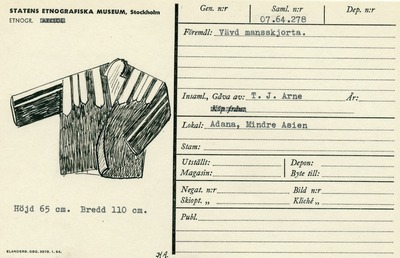 STATENS ETNOGRAFISKA MUSEUM, Stockholm
ETNOGR.
Höjd 65 cm. Bredd 110 cm.
Gen. n:r
Saml. n:r
Dep. n:r
07.64.278
Föremål: Vävd mansskjorta.
Insaml., Gåva av: T. J. Arne År:
Köp från:
Lokal: Adana, Mindre Asien
Stam:
Utställt: Depon:
Magasin: Byte till:
Negat. n:r Bild n:r
Skiopt. „ Kliché „
Publ.